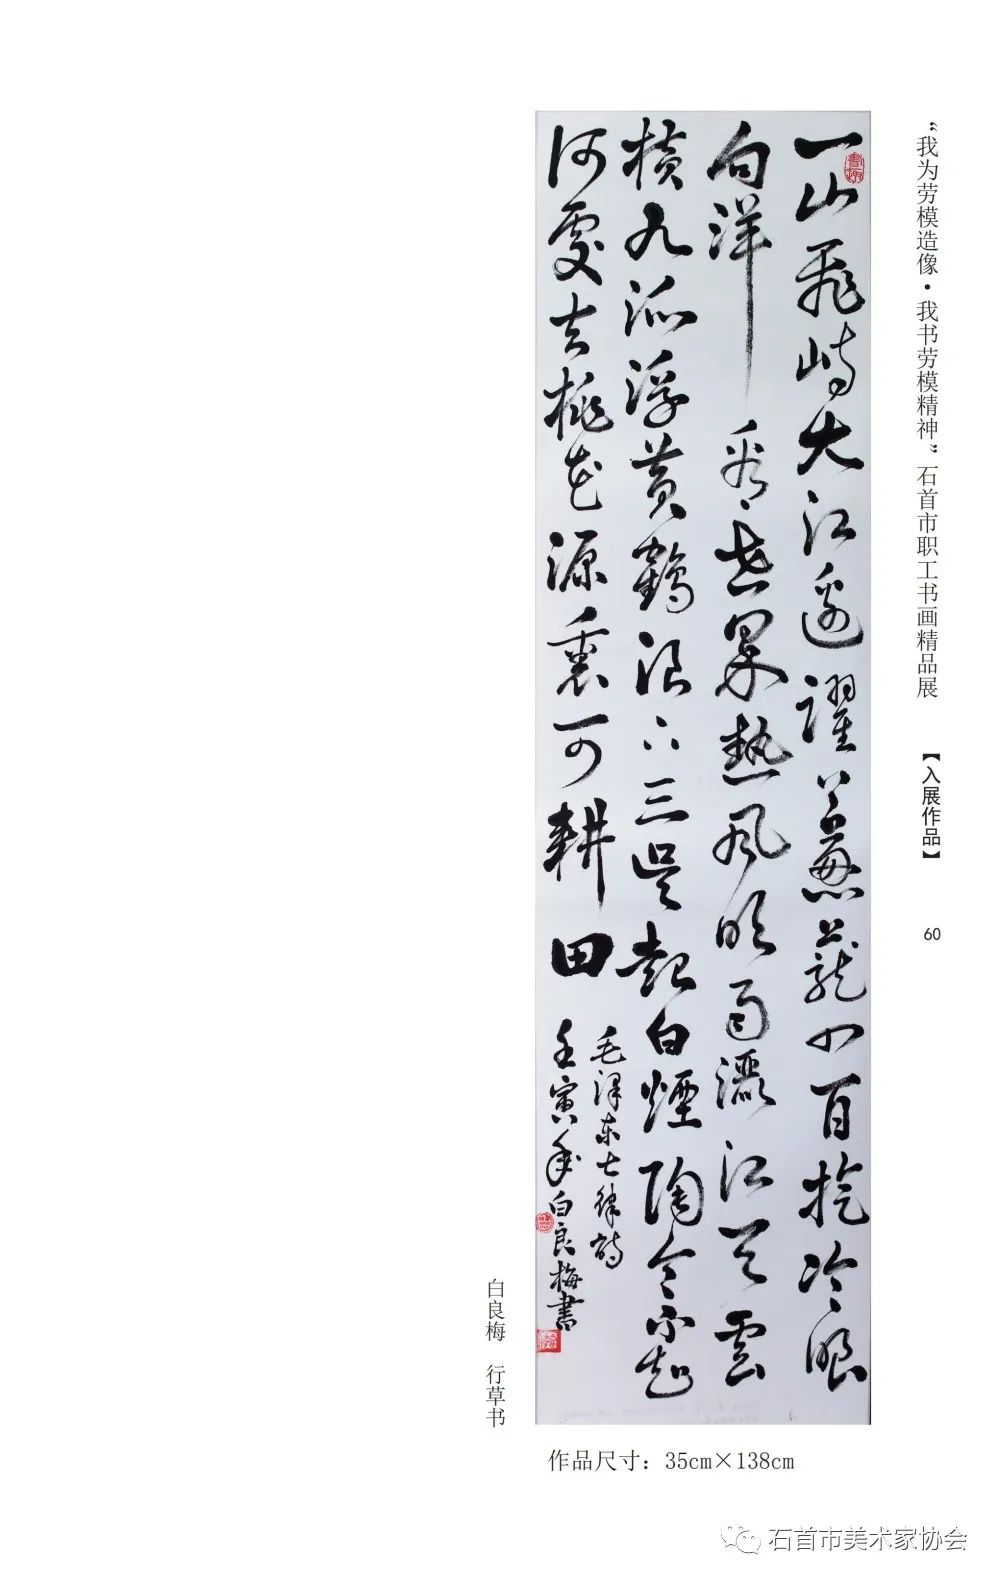 “我为劳模造像·我书劳模精神”石首市职工书画精品展
【入展作品】
60
一山飛峙大江邊躍上蔥蘢四百旋冷眼
向洋看世界熱風吹雨灑江天雲
橫九派浮黃鶴浪下三吳起白煙陶令不知
何處去桃花源裏可耕田
毛澤東七律詩
壬寅年白良梅書
白良梅 行草书
作品尺寸：35cm×138cm
石首市美术家协会